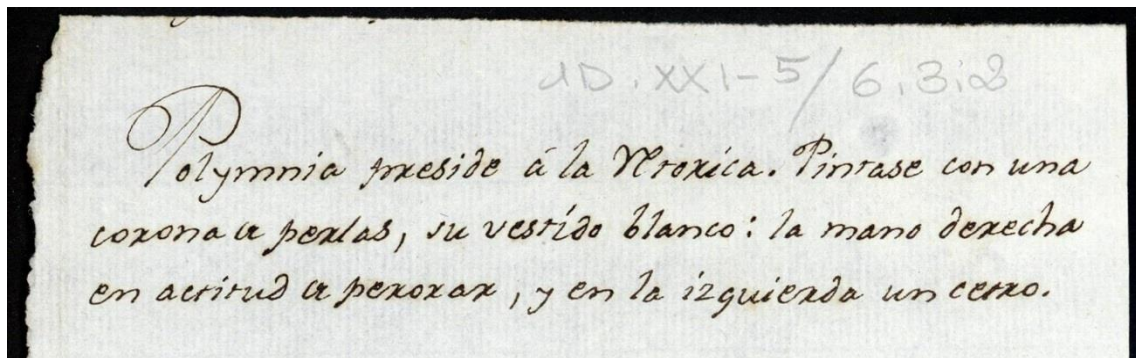 1D.XXI-5/6.3.2
Polymnia preside á la Rtorica. Pintase con una
corona de perlas, su vestído blanco: la mano derecha
en actitud de perorar, y en la izquierda un cetro.